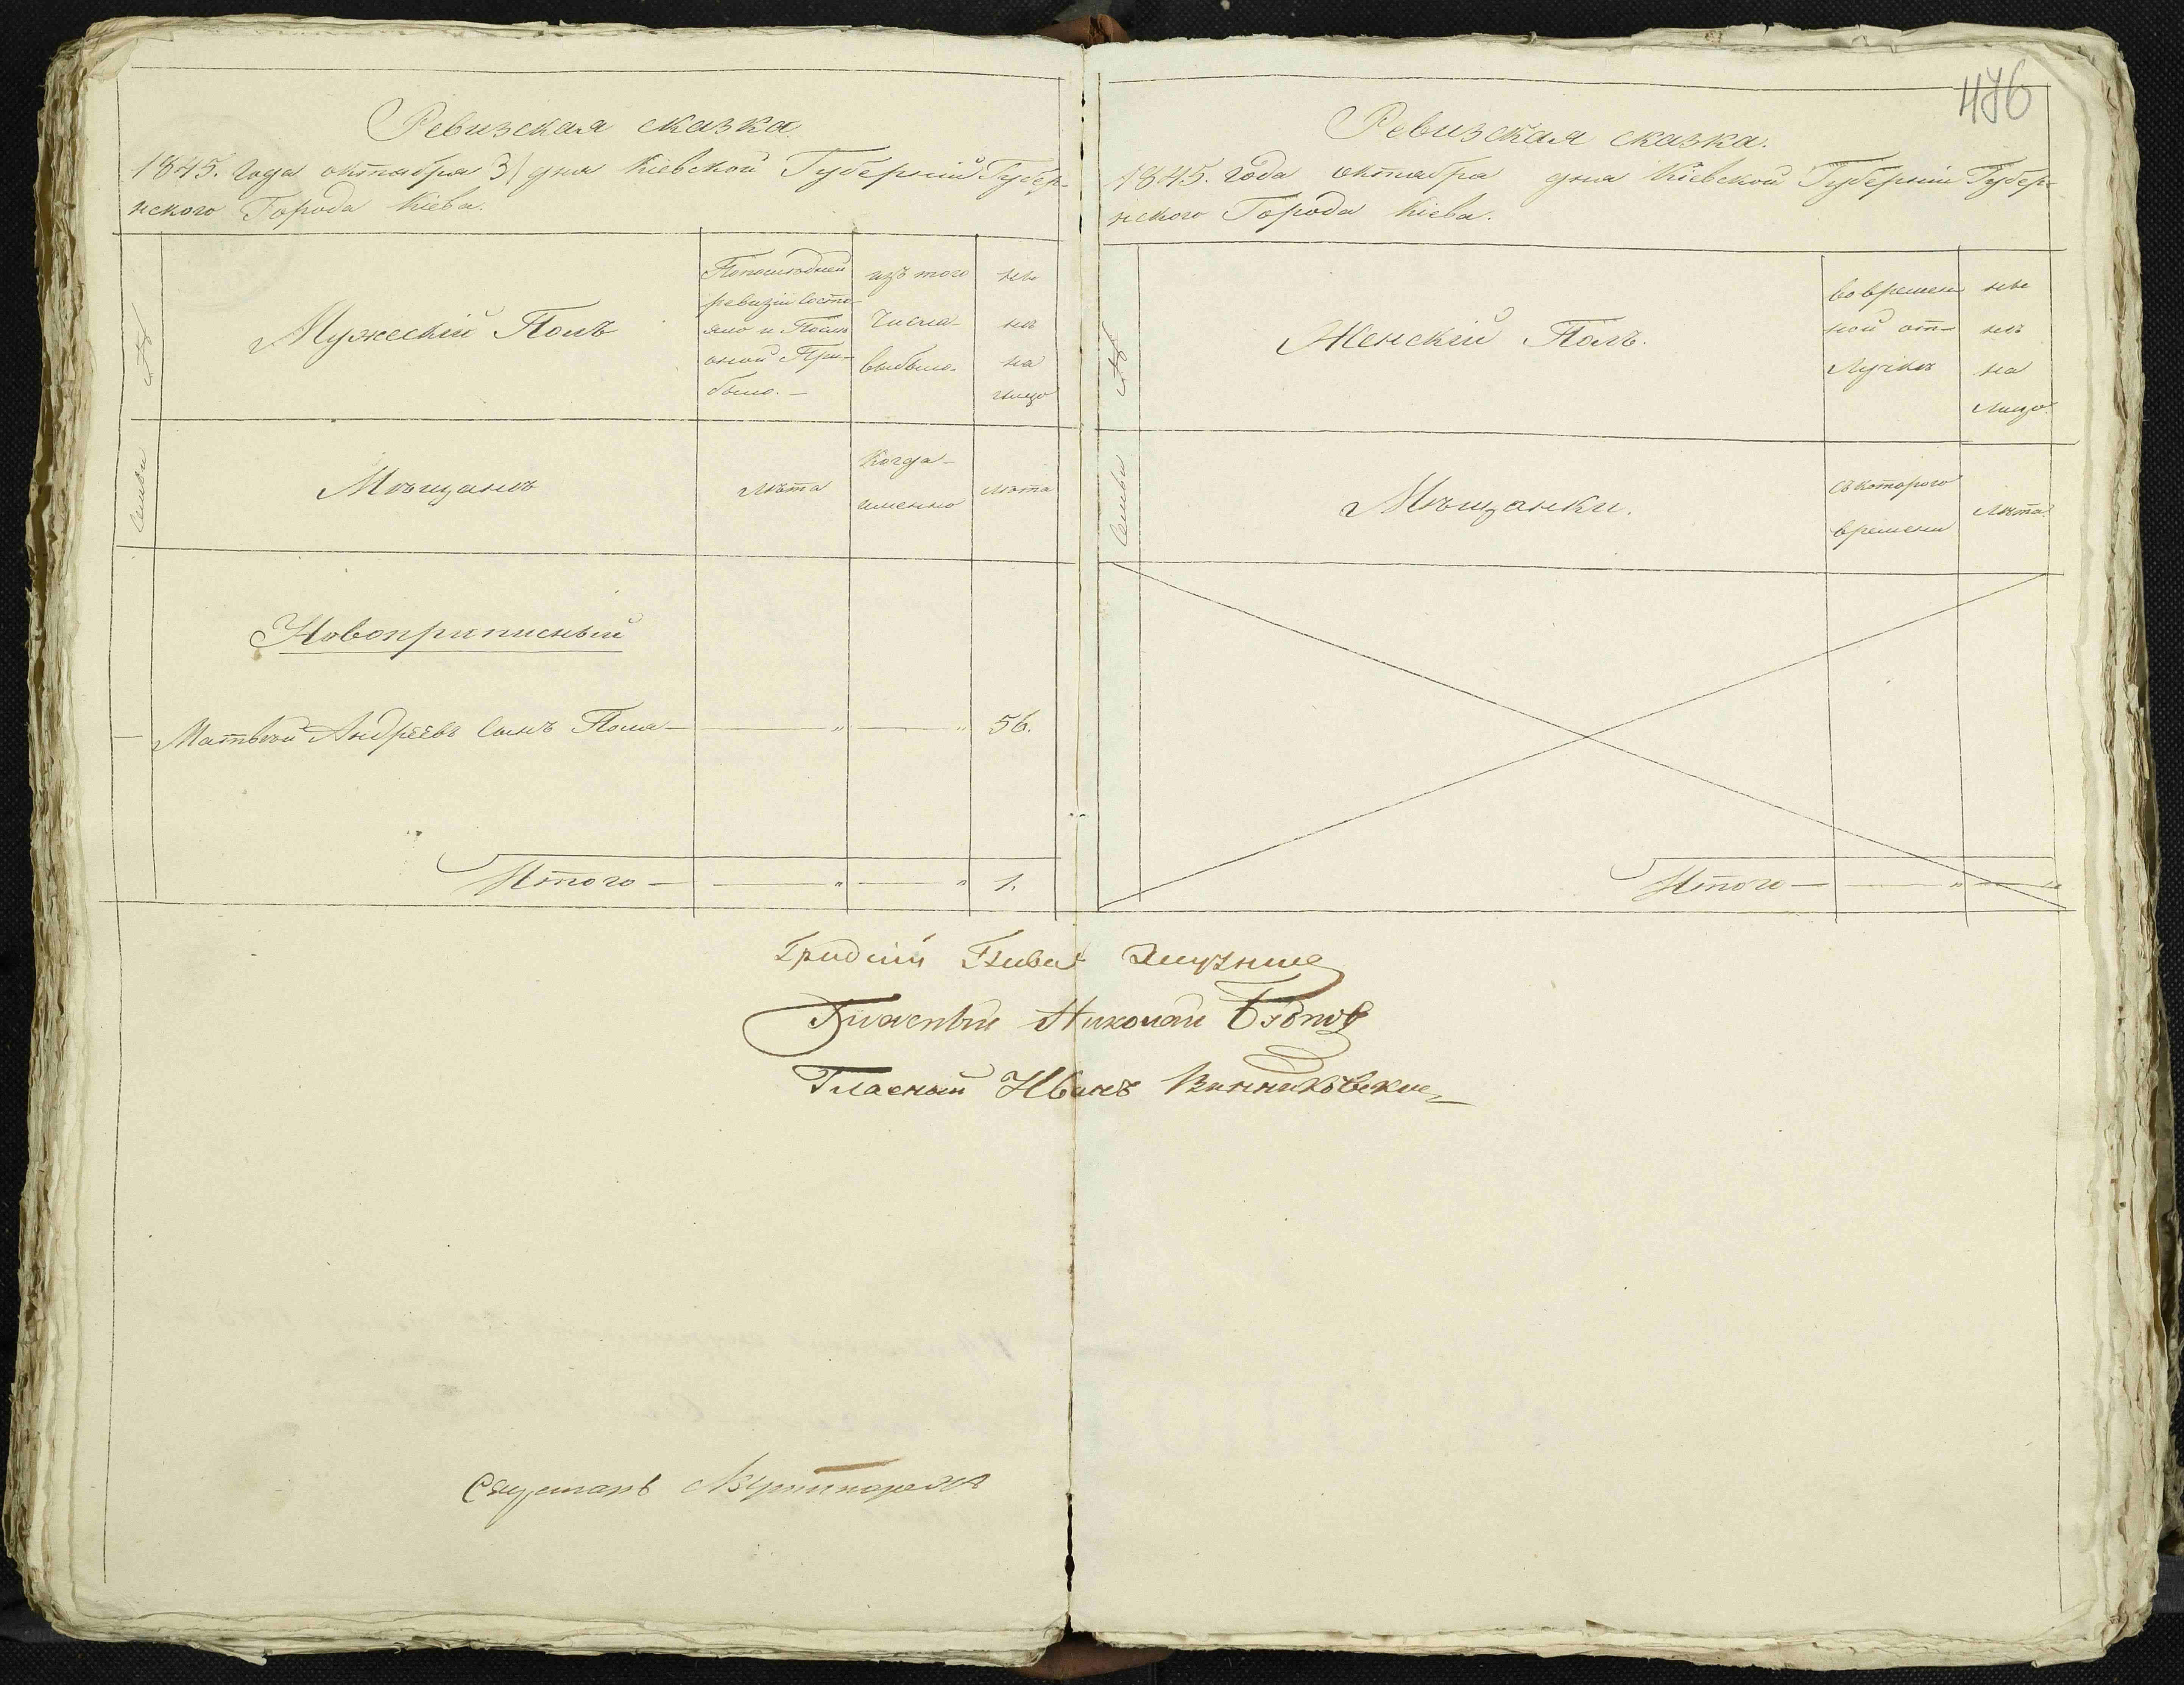 476
Ревизская сказка
1845. года октября 31 дня Кіевской Губерніи Губер-
нского Города Кіева.
№
Семьи
Мужескій Полъ
Попоследней
ревизіи состо-
яло и После
оной При-
было.
изъ того
Числа
выбыло
ны
нѣ
на
лицо
Мѣщанъ
лѣта
Когда
именно
лѣта
Новоприписный
Матвѣй Андреевъ Сынъ Пола — — " — " 56.
Итого — — " — " 1.
Ревизская сказка.
1845. года октября дня Кіевской Губерніи Губер-
нского Города Кіева.
№
Семьи
Женскій Полъ.
во времен
ной от-
лучкѣ
ны
нѣ
на
лицо.
Мѣщанки.
съ котораго
времени
Лѣта
Итого — — " — "
Гласный Николай
Гласный Иванъ